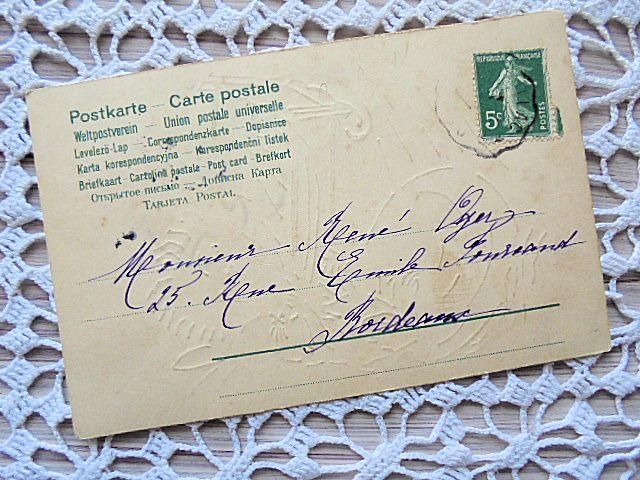 Postkarte – Carte postale
Weltpostverein – Union postale universelle
Levelező-Lap – Correspondenzkarte – Dopisnice
Karta korespondencyjna – Korespondenční lístek
Briefkaart - Cartolina postale - Post card - Brefkort
Открытое письмо – Дописна Карта
Tarjeta Postal
REPUBLIQUE FRANÇAISE
5c
POSTES
Monsieur René
25. Rue Emile Fourcand
Bordeaux